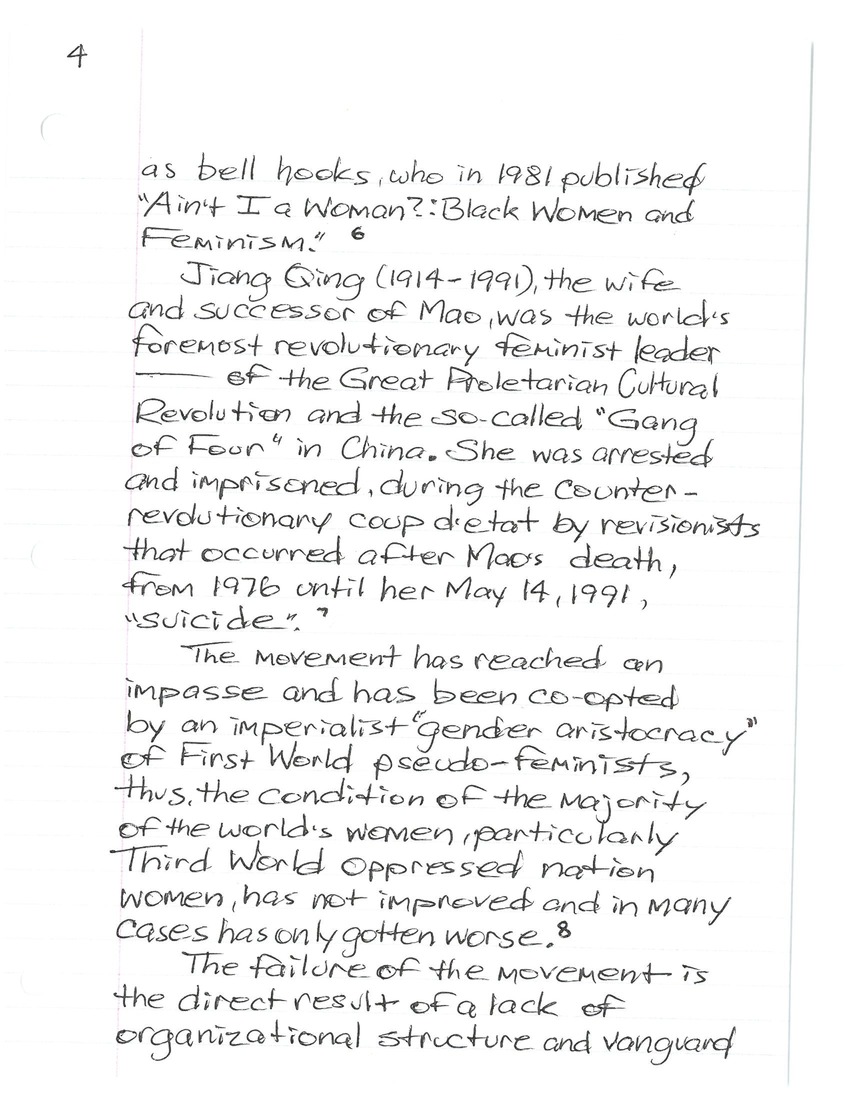 4
as bell hooks, who in 1981 published
"Ain't I a Woman?: Black Women and
Feminism." 6
Jiang Qing (1914-1991), the wife
and successor of Mao, was the world's
foremost revolutionary feminist leader
—— of the Great Proletarian Cultural
Revolution and the so-called "Gang
of Four" in China. She was arrested
and imprisoned, during the counter-
revolutionary coup d'etat by revisionists
that occurred after Mao's death,
from 1976 until her May 14, 1991,
"suicide". 7
The movement has reached an
impasse and has been co-opted
by an imperialist "gender aristocracy"
of First World pseudo-feminists,
thus, the condition of the majority
of the world's women, particularly
Third World oppressed nation
women, has not improved and in many
cases has only gotten worse. 8
The failure of the movement is
the direct result of a lack of
organizational structure and vanguard